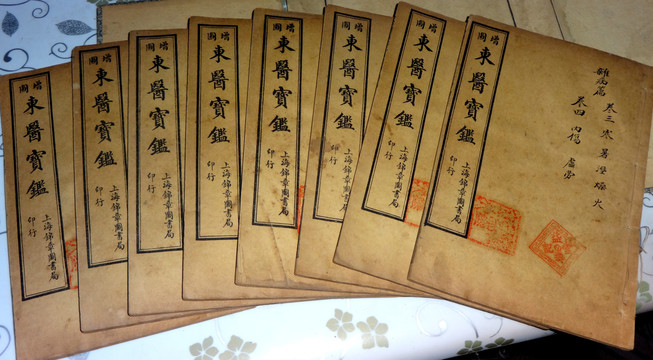 增圖
東醫寶鑑
上海錦章圖書局
印行
增圖
東醫寶鑑
上海錦章圖書局
印行
增圖
東醫寶鑑
上海錦章圖書局
印行
增圖
東醫寶鑑
上海錦章圖書局
印行
增圖
東醫寶鑑
上海錦章圖書局
印行
增圖
東醫寶鑑
上海錦章圖書局
印行
增圖
東醫寶鑑
上海錦章圖書局
印行
雜病篇 卷三 寒 暑 溼 燥 火
卷四 內傷 虛勞
增圖
東醫寶鑑
上海錦章圖書局
印行